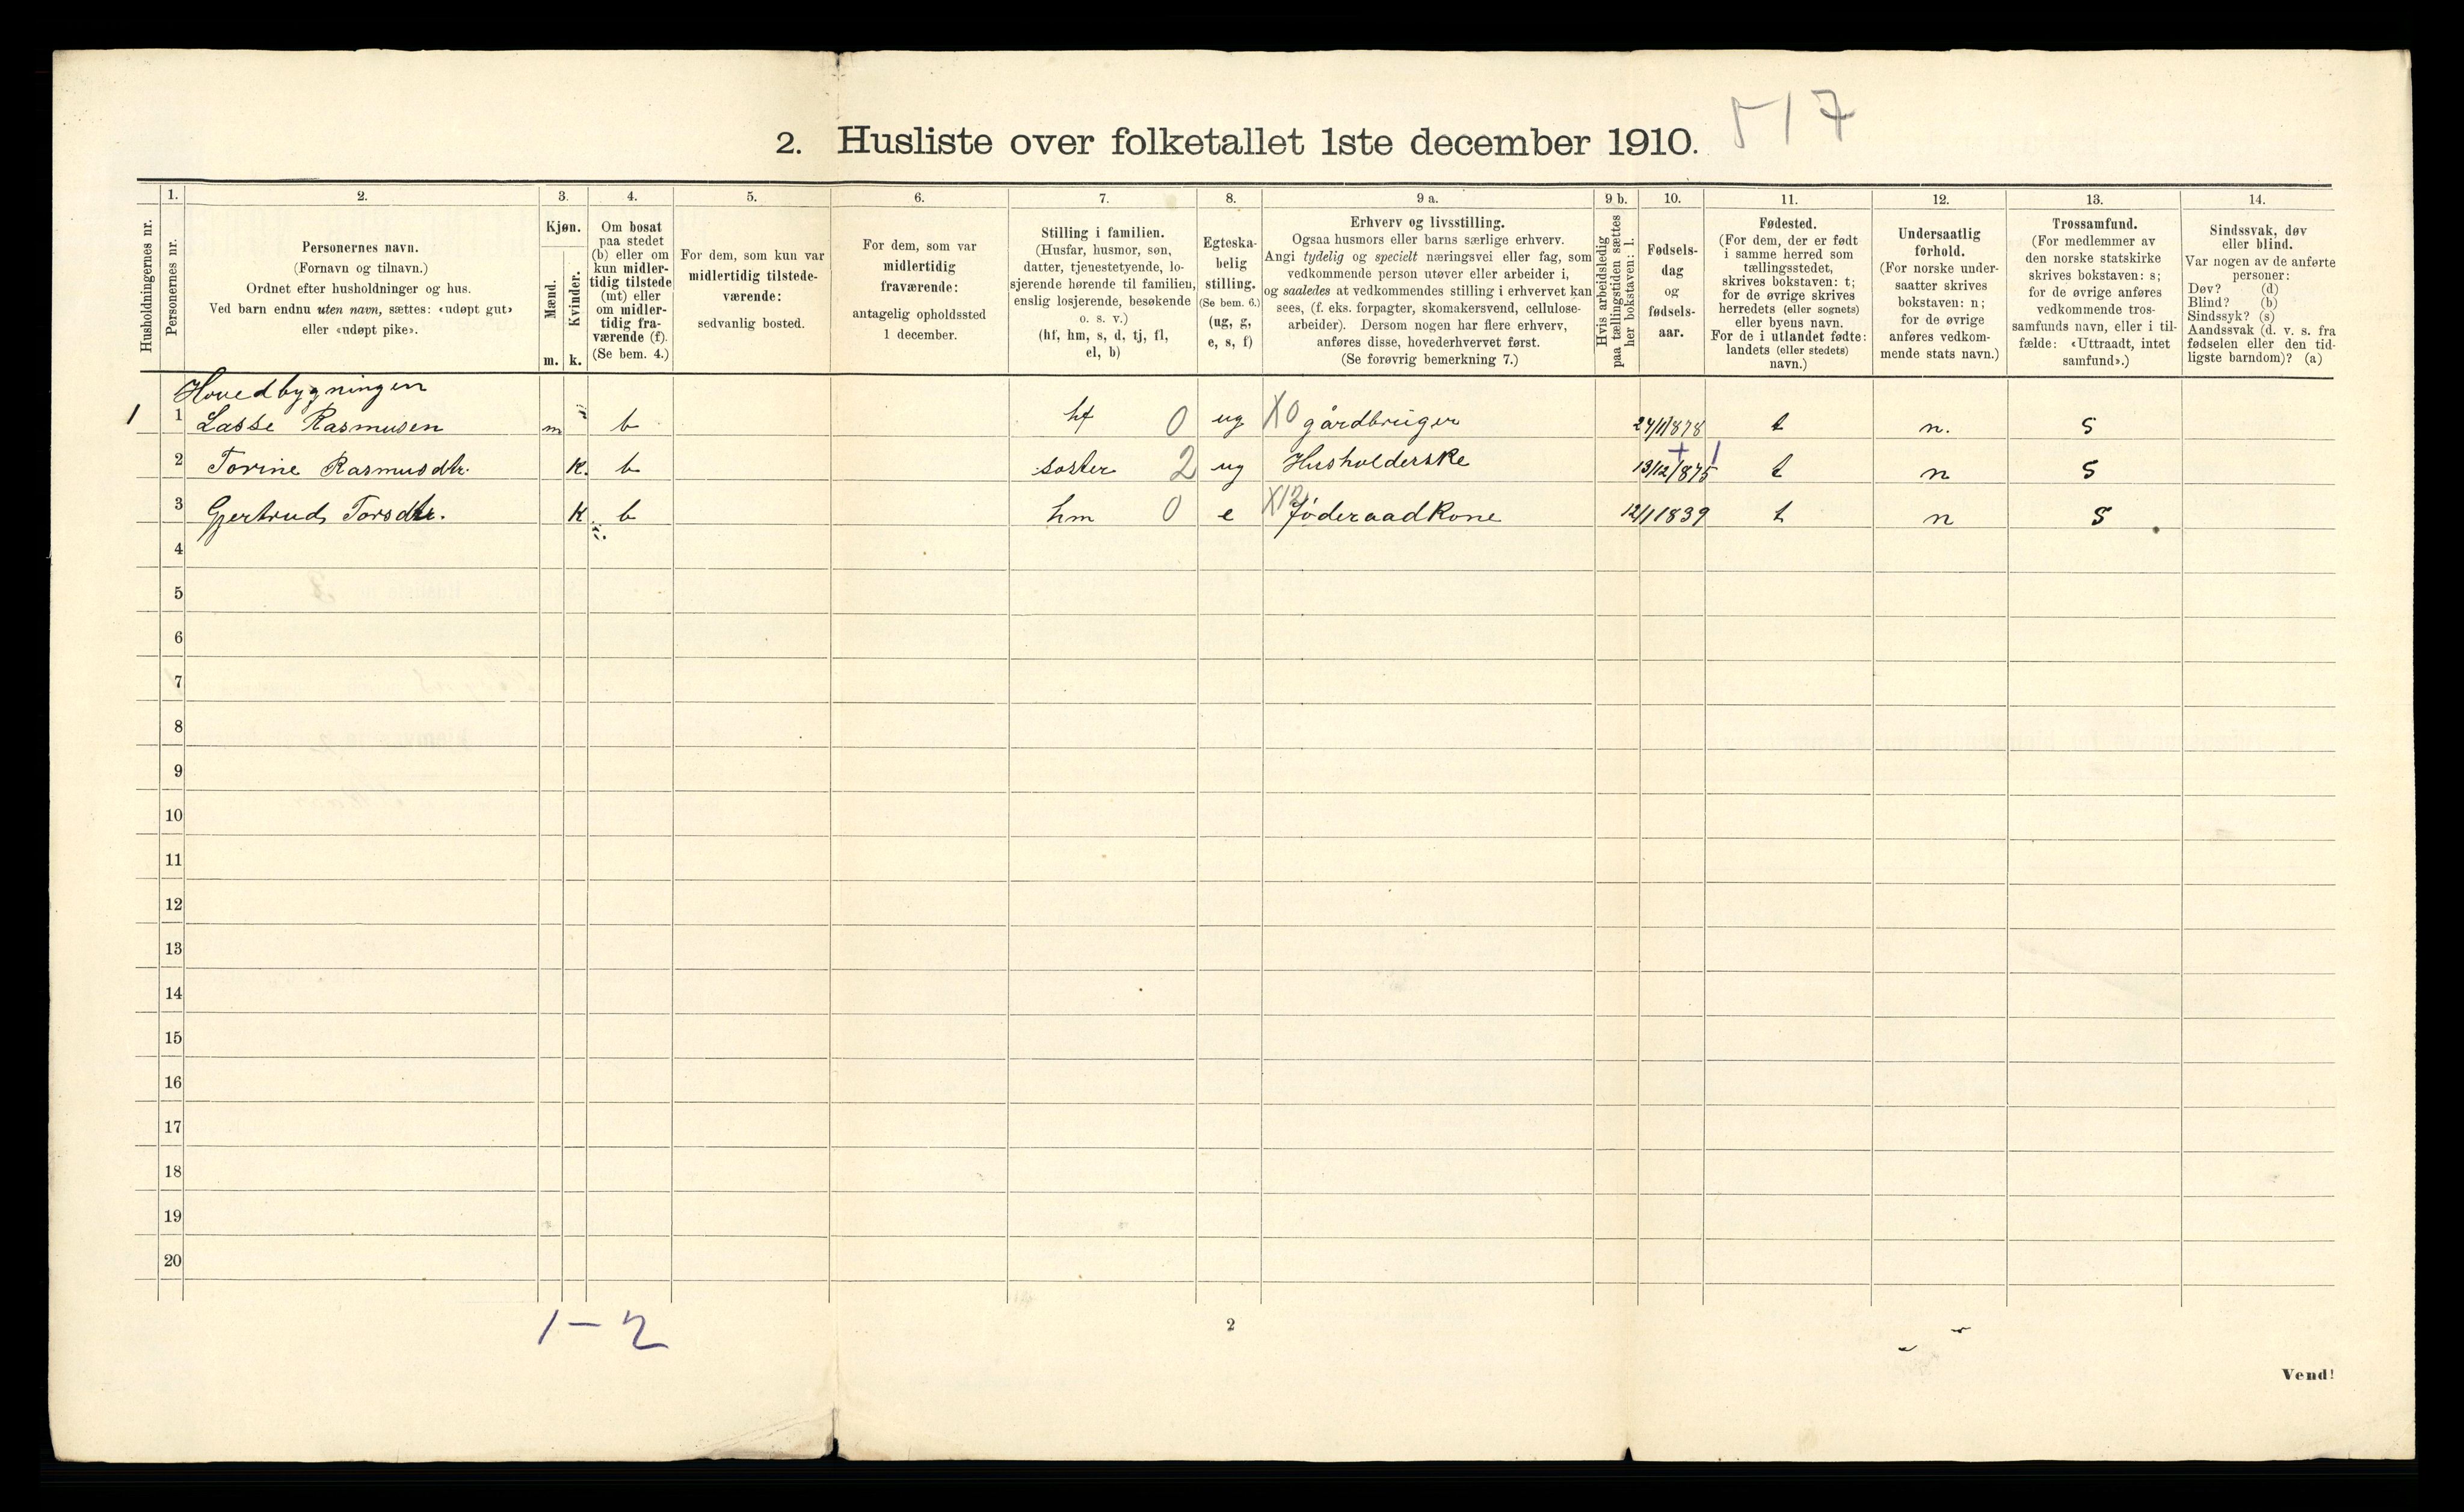 517
2. Husliste over folketallet 1ste december 1910.
Husholdningernes nr.
1.
Personernes nr.
2.
Personernes navn.
(Fornavn og tilnavn.)
Ordnet efter husholdninger og hus.
Ved barn endnu uten navn, sættes: «udøpt gut»
eller «udøpt pike».
3.
Kjøn.
Mænd.
m.
Kvinder.
k.
4.
Om bosat
paa stedet
(b) eller om
kun midler-
tidig tilstede
(mt) eller
om midler-
tidig fra-
værende (f).
(Se bem. 4.)
5.
For dem, som kun var
midlertidig tilstede-
værende:
sedvanlig bosted.
6.
For dem, som var
midlertidig
fraværende:
antagelig opholdssted
1 december.
7.
Stilling i familien.
(Husfar, husmor, søn,
datter, tjenestetyende, lo-
sjerende hørende til familien,
enslig losjerende, besøkende
o. s. v.)
(hf, hm, s, d, tj, fl,
el, b)
8.
Egteska-
belig
stilling.
(Se bem. 6.)
(ug, g,
e, s, f)
9 a.
Erhverv og livsstilling.
Ogsaa husmors eller barns særlige erhverv.
Angi tydelig og specielt næringsvei eller fag, som
vedkommende person utøver eller arbeider i,
og saaledes at vedkommendes stilling i erhvervet kan
sees, (f. eks. forpagter, skomakersvend, cellulose-
arbeider). Dersom nogen har flere erhverv,
anføres disse, hovederhvervet først.
(Se forøvrig bemerkning 7.)
9 b.
Hvis arbeidsledig
paa tællingstiden sættes
her bokstaven: l.
10.
Fødsels-
dag
og
fødsels-
aar.
11.
Fødested.
(For dem, der er født
i samme herred som
tællingsstedet,
skrives bokstaven: t;
for de øvrige skrives
herredets (eller sognets)
eller byens navn.
For de i utlandet fødte:
landets (eller stedets)
navn.)
12.
Undersaatlig
forhold.
(For norske under-
saatter skrives
bokstaven: n;
for de øvrige
anføres vedkom-
mende stats navn.)
13.
Trossamfund.
(For medlemmer av
den norske statskirke
skrives bokstaven: s;
for de øvrige anføres
vedkommende tros-
samfunds navn, eller i til-
fælde: «Uttraadt, intet
samfund».)
14.
Sindssvak, døv
eller blind.
Var nogen av de anførte
personer:
Døv? (d)
Blind? (b)
Sindssyk? (s)
Aandssvak (d. v. s. fra
fødselen eller den tid-
ligste barndom)? (a)
Hovedbygningen
1 1 Lasse Rasmusen m b hf 0 ug X0 gårdbruger 24/11878 t n. s
2 Torine Rasmusdtr. k. b søster 2 ug Husholderske 13/12/1875 t n s
3 Gjertrud Torsdtr. k b hm 0 e X12 føderaadkone 12/1 1839 t n s
4
5
6
7
8
9
10
11
12
13
14
15
16
17
18
19
20
1 – 2
2
Vend!